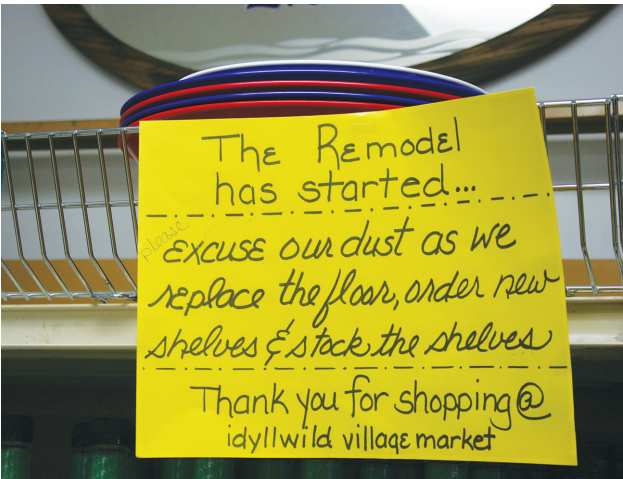 The Remodel
has started...
please
Excuse our dust as we
replace the floor, order new
shelves & stock the shelves
Thank you for shopping @
idyllwild village market